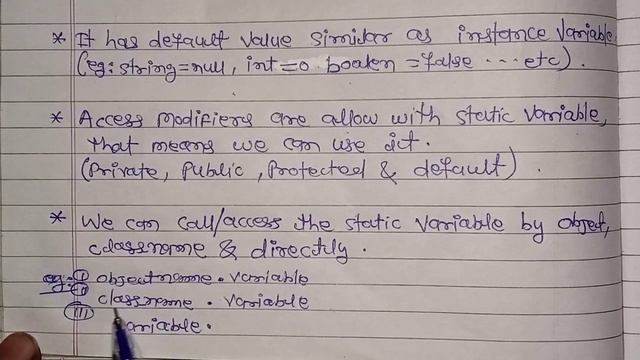 * It has default value similar as instance variable
(eg: string=null, int=0 boolen=false ... etc).
* Access modifiers are allow with static variable,
that means we can use it.
(Private, Public, Protected & default).
* We can call/access the static variable by object,
classname & directly.
eg:- (i) objectname. variable
(ii) classname. variable
(iii) variable.